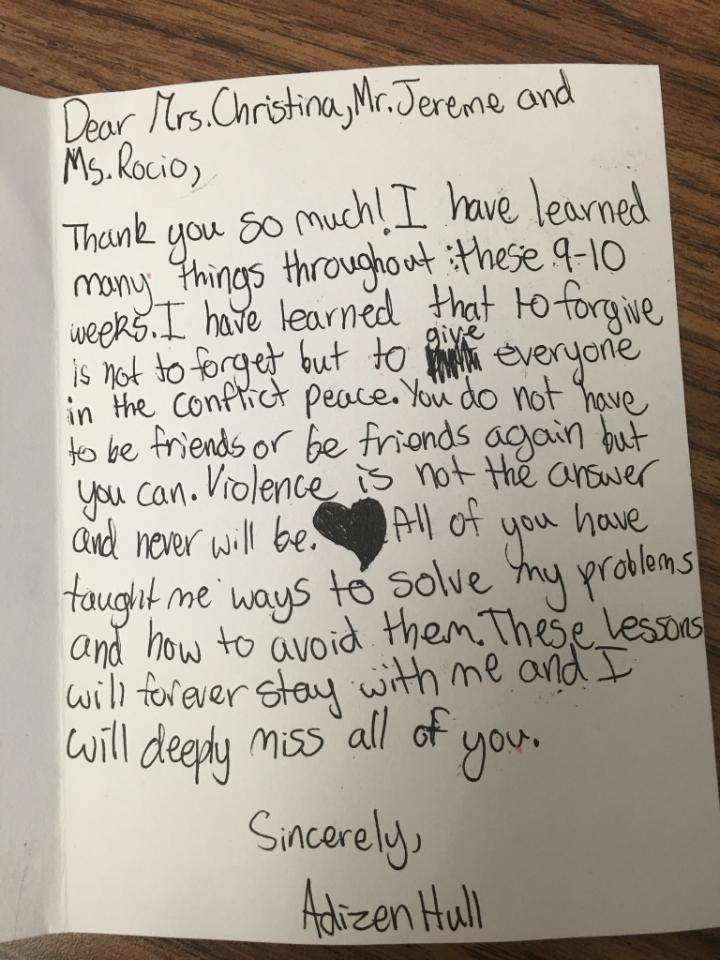 Dear Mrs.Christina, Mr.Jereme and
Ms.Rocio,
Thank you so much! I have learned
many things throughout these 9-10
weeks. I have learned that to forgive
is not to forget but to give everyone
in the conflict peace. You do not have
to be friends or be friends again but
you can. Violence is not the answer
and never will be. All of you have
taught me ways to solve my problems
and how to avoid them. These lessons
will forever stay with me and I
will deeply miss all of you.
Sincerely,
Adizen Hull